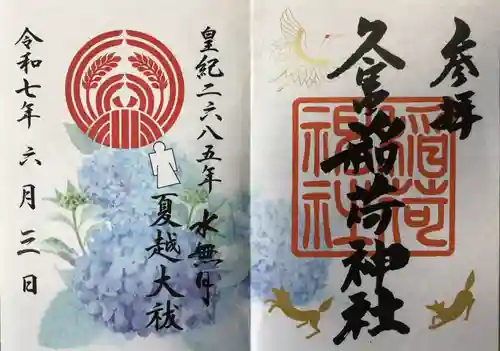 参拝
久富稲荷神社
稲荷
神社
皇紀二六八五年 水無月
夏越大祓
令和七年 六月三日